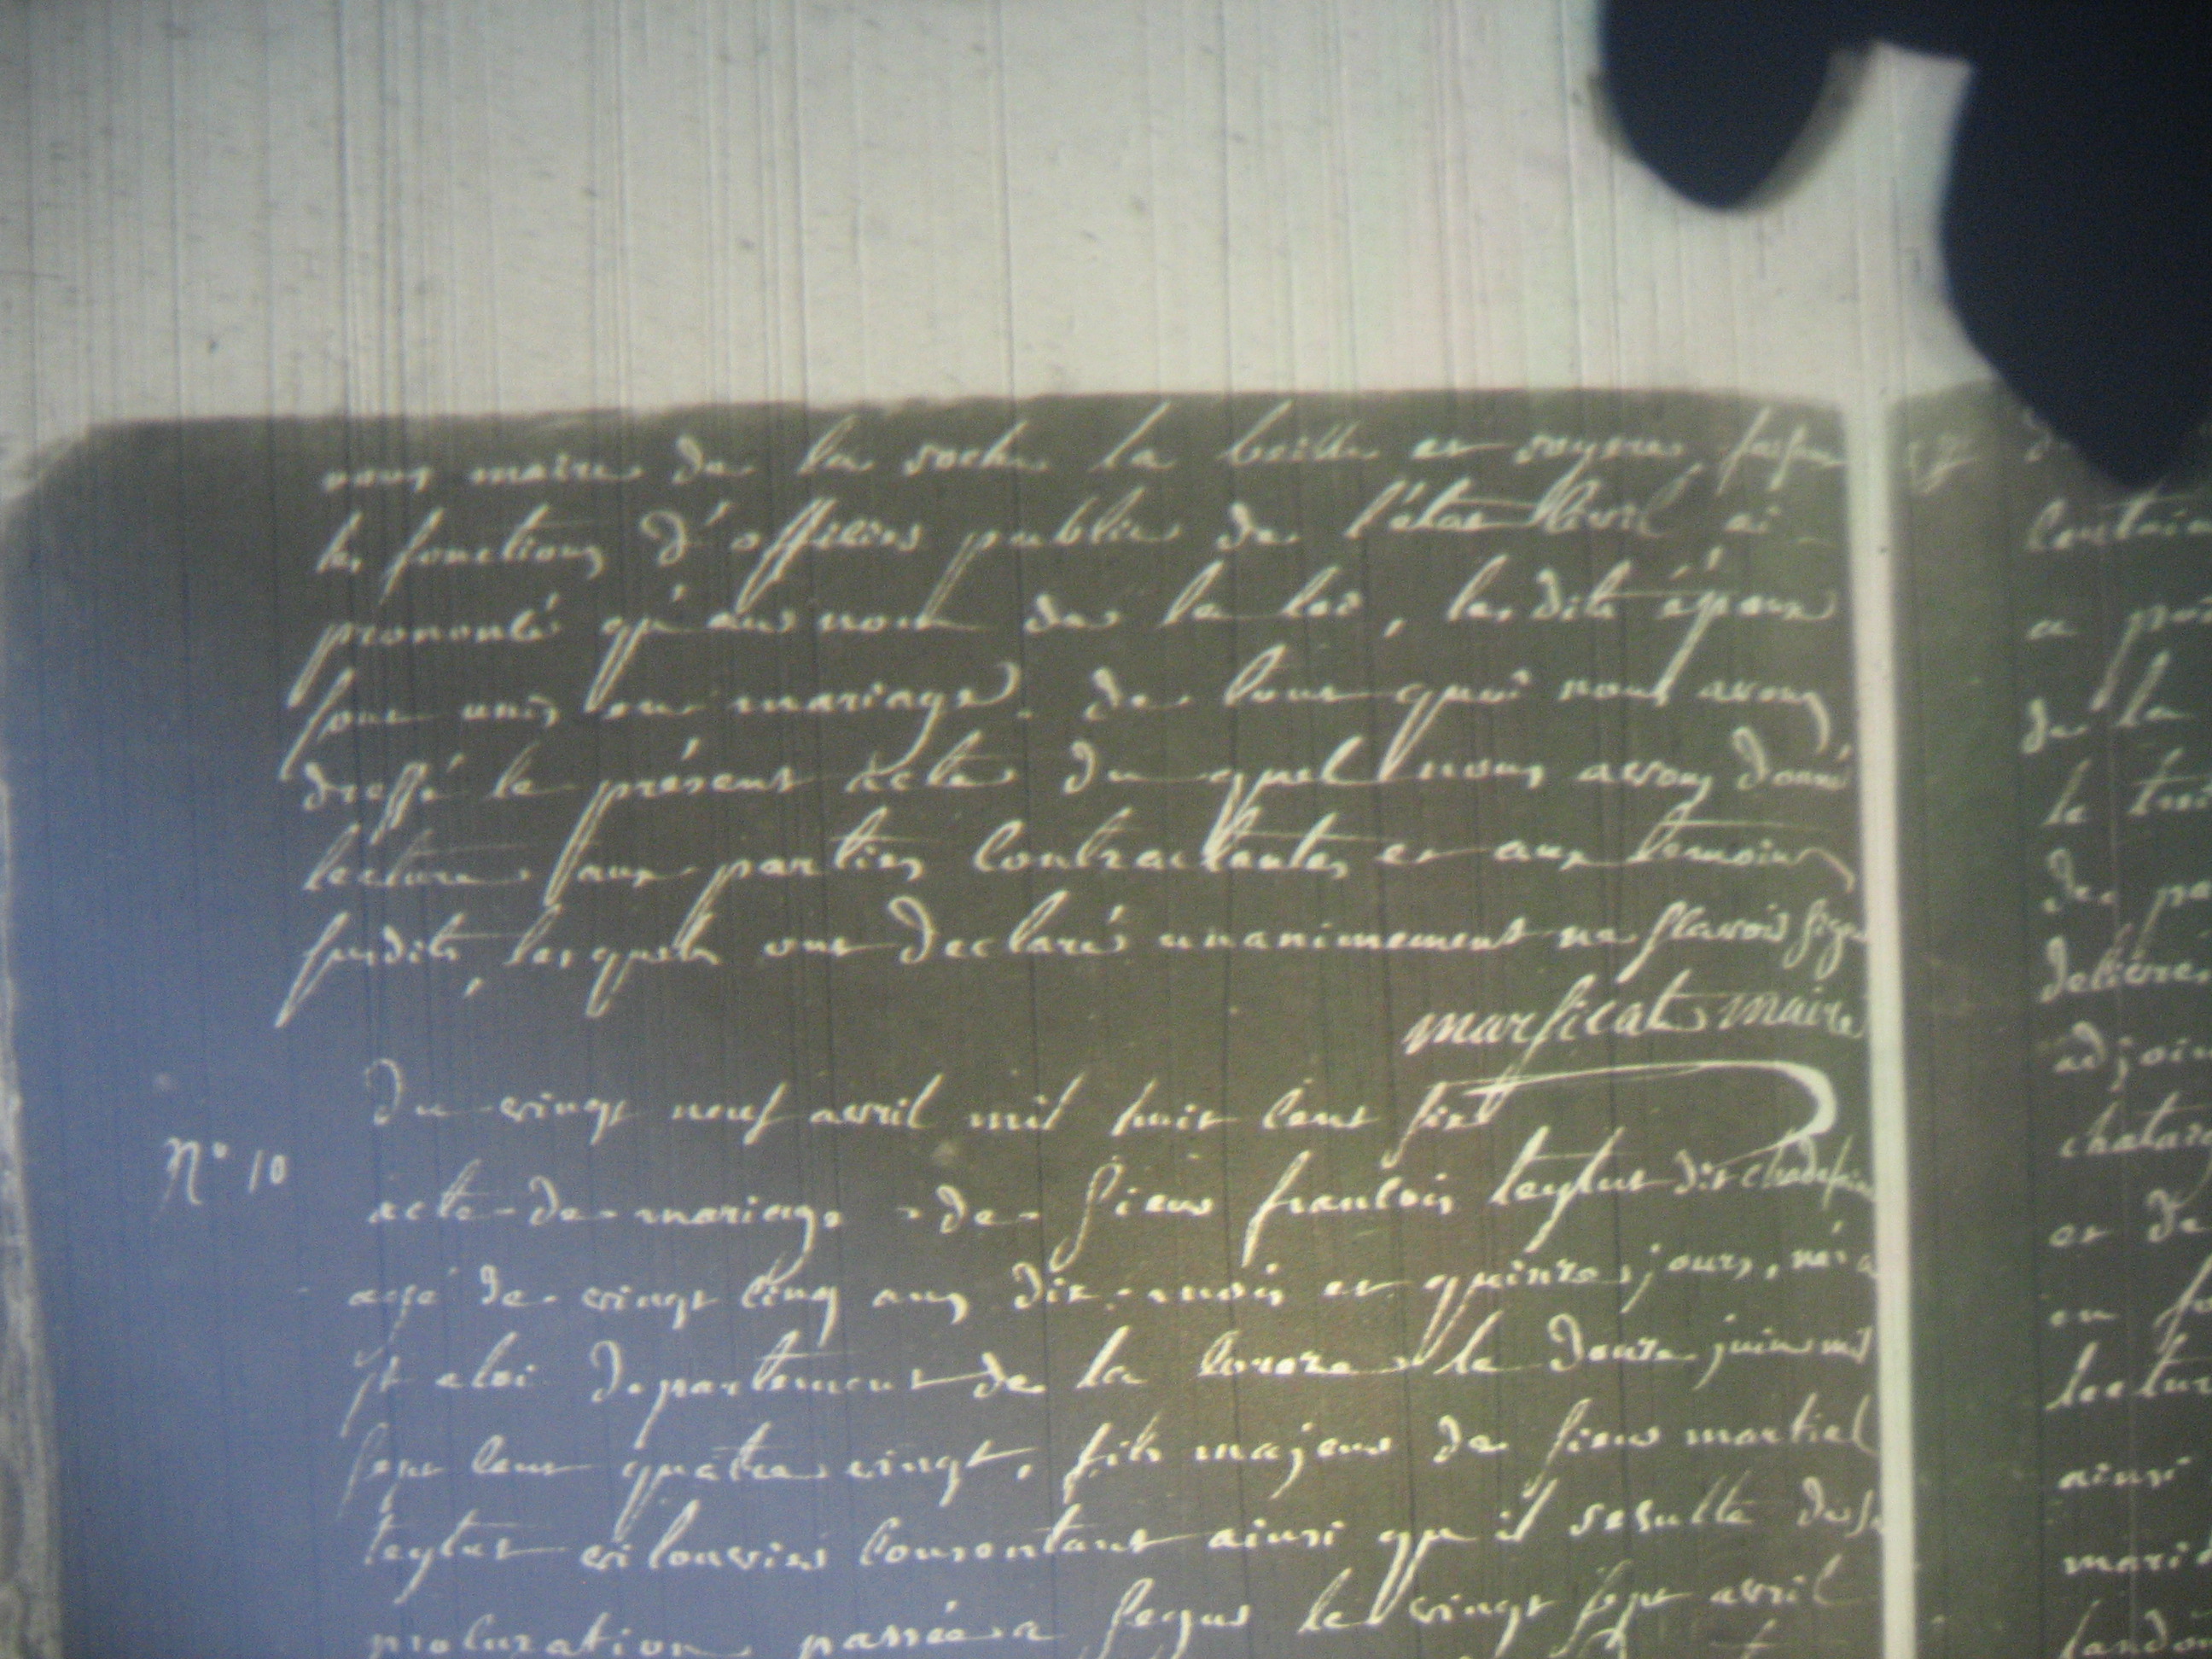 nous maire de la roche la beille et royere, faisant
les fonctions d'officier public de l'état Civil ai
prononcé qu'au nom de la loi, les dits époux
sont unis en mariage. de tout quoi nous avons
dressé le présent acte du quel nous avons donné
lecture aux parties contractantes et aux temoins
susdits, lesquels ont declaré unanimement ne sçavoir signer
marsicat maire
Du vingt neuf avril mil huit cent six
N° 10
acte de mariage de sieur francois teytut dit
agé de vingt cinq ans dix mois et quinze jours, né a
st eloi departement de la correze le douze juin mil
sept cent quatre vingt, fils majeur de sieur martiel
teytut cultivateur consentant ainsi qu'il resulte de sa
procuration passée a segur le vingt sept avril
contain
a pro
de la
le tro
de pa
delivre
adjoin
et de
en
lectur
ainsi
mari